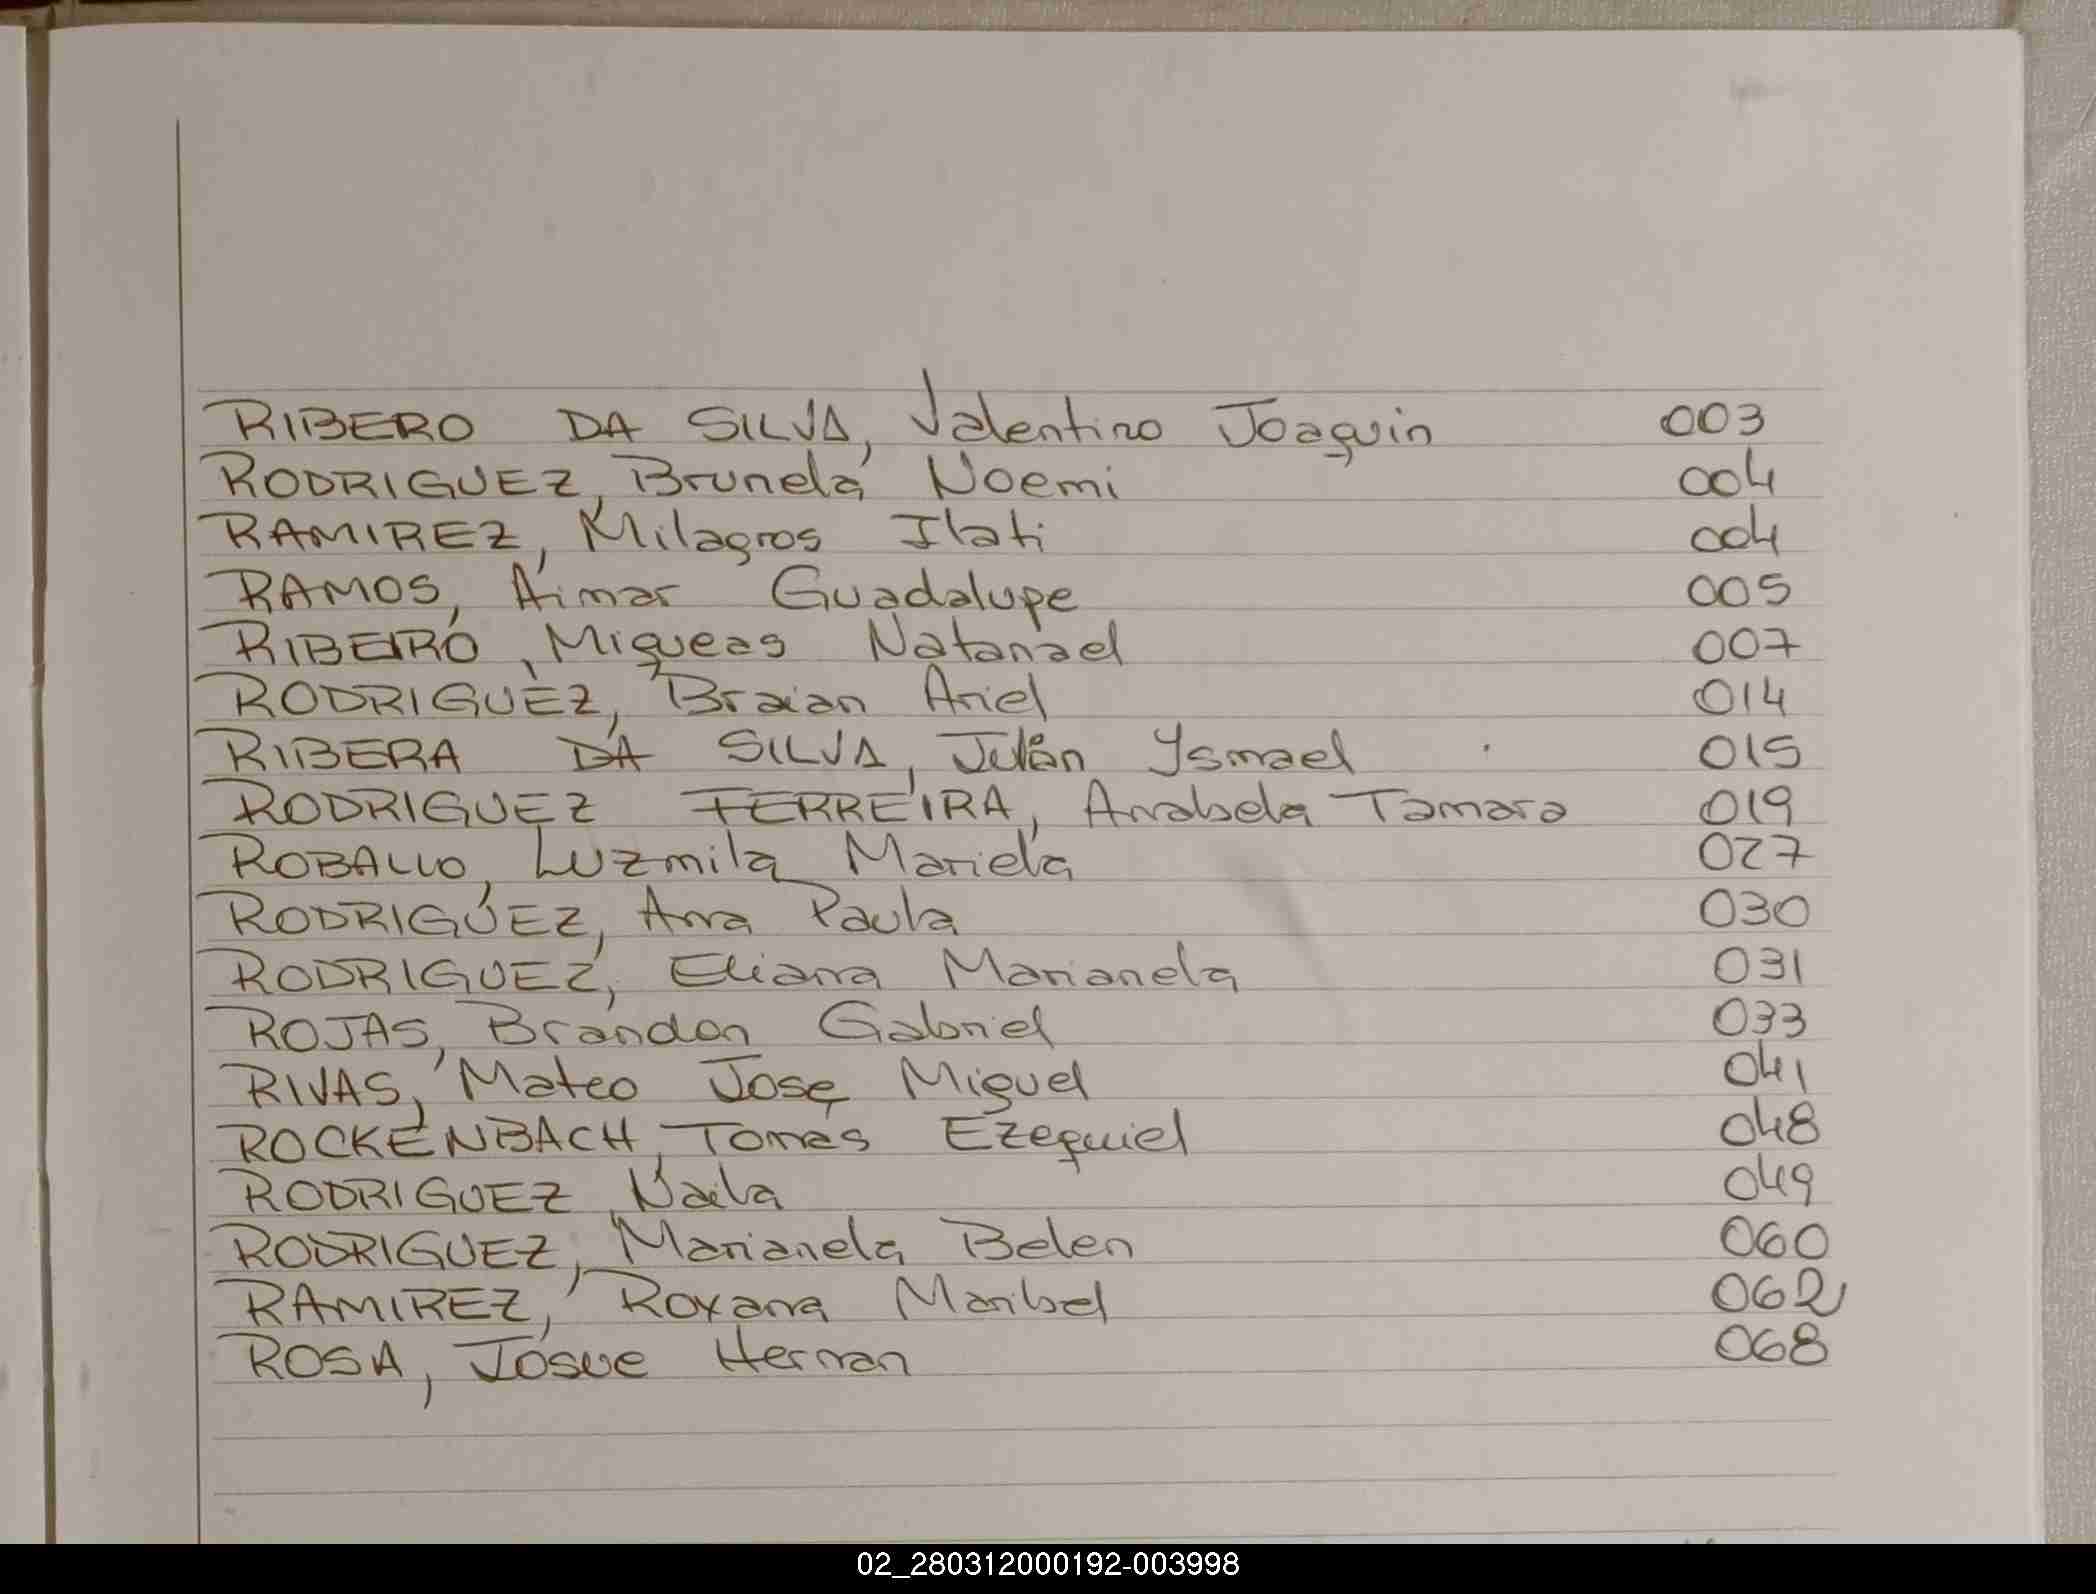 RIBERO DA SILVA, Valentino Joaquin 003
RODRIGUEZ, Brunela Noemi 004
RAMIREZ, Milagros Itati 004
RAMOS, Aimar Guadalupe 005
RIBEIRO, Miqueas Natanael 007
RODRIGUEZ, Braian Ariel 014
RIBERA DA SILVA, Julián Ysmael 015
RODRIGUEZ FERREIRA, Anabela Tamara 019
ROBALLO, Luzmila Mariela 027
RODRIGUEZ, Ana Paula 030
RODRIGUEZ, Eliana Marianela 031
ROJAS, Brandon Gabriel 033
RIVAS, Mateo Jose Miguel 041
ROCKENBACH, Tomas Ezequiel 048
RODRIGUEZ, Naila 049
RODRIGUEZ, Marianela Belen 060
RAMIREZ, Roxana Maribel 062
ROSA, Josue Hernan 068
02_280312000192-003998